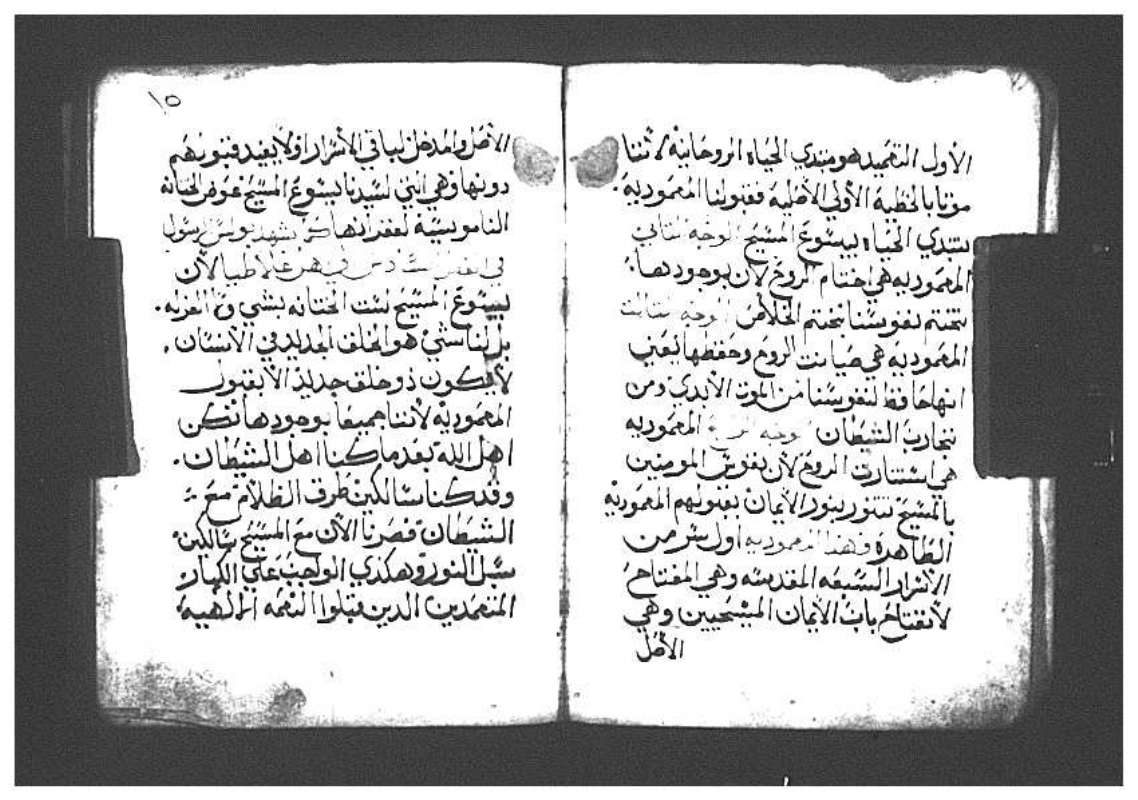 الأول التعميد هو مبتدي الحياه الروحانية لاننا
موتا بالخطية الأولي الأصلية فقبولنا المعمودية.
نبتدي الحياه بيسوع المسيح الوجه الثاني
المعموديه هي اختام الروح لان بوجودها.
تختتم نفوسنا بختم الخلاص الوجه الثالث
المعموديه هي صيانت الروح وحفظها يعني
انها حافظ لنفوسنا من الموت الأبدي ومن
تجارب الشيطان الوجه الرابع المعموديه
هي استنارت الروح لان نفوس المومنين
بالمسيح تتنور بنور الأيمان بقبولهم المعمودية
الطاهره فهذا المعموديه اول سر من
الأسرار السبعه المقدسه وهي المفتاح
لأنفتاح باب الأيمان المسيحيين وهي
الأصل
١٥
الأصل والمدخل لباقي الأسرار اذ لا يفيد قبولهم
دونها وهي التي لسيدنا يسوع المسيح عوض الختانه
الناموسية كمثل يشهد بولس الرسول
في السادس في غلاطيا لأن
بيسوع المسيح ليست الختانه بشي ولا الغرله.
بل لنا شي هو الخلق الجديد في الأنسان.
لا يكون ذو خلق جديد الا بقبول
المعموديه لأننا جميعا بوجودها نكن
اهل الله بعد ما كنا اهل الشيطان.
وقد كنا سالكين طرق الظلام مع
الشيطان فصرنا الأن مع المسيح سالكين
سبل النور وهكذي الواجب علي الكبار
المتعمدين الدين قبلوا النعمه الالهيه